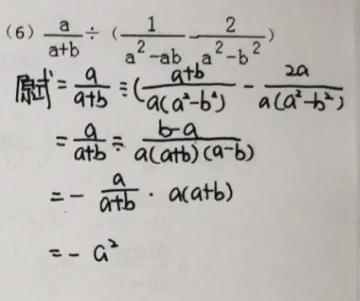 (6) a/(a+b) ÷ (1/(a²-ab) - 2/(a²-b²))
原式 = a/(a+b) ÷ ((a+b)/(a(a²-b²)) - 2a/(a(a²-b²))
= a/(a+b) ÷ (b-a)/(a(a+b)(a-b))
= - a/(a+b) · a(a+b)
= - a²